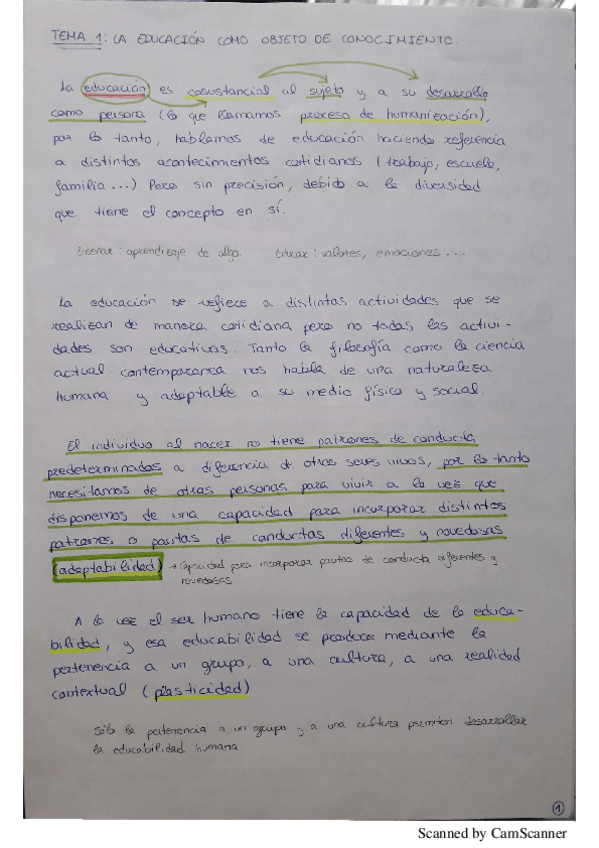 TEMA 1: LA EDUCACIÓN COMO OBJETO DE CONOCIMIENTO.
La educación es cosustancial al sujeto y a su desarrollo
como persona (lo que llamamos proceso de humanización),
por lo tanto, hablamos de educación haciendo referencia
a distintos acontecimientos cotidianos (trabajo, escuela,
familia...) Pero sin precisión, debido a la diversidad
que tiene el concepto en sí.
Enseñar: aprendizaje de algo. Educar: valores, emociones...
La educación se refiere a distintas actividades que se
realizan de manera cotidiana pero no todas las activi-
dades son educativas. Tanto la filosofía como la ciencia
actual contemporanea nos habla de una naturaleza
humana y adaptable a su medio físico y social.
El individuo al nacer no tiene patrones de conducta
predeterminados a diferencia de otros seres vivos, por lo tanto
necesitamos de otras personas para vivir a la vez que
disponemos de una capacidad para incorporar distintos
patrones o pautas de conductas diferentes y novedosas
(adaptabilidad) → Capacidad para incorporar pautas de conducta diferentes y
novedosas
A la vez el ser humano tiene la capacidad de la educa-
bilidad, y esa educabilidad se produce mediante la
pertenencia a un grupo, a una cultura, a una realidad
contextual (plasticidad)
Sólo la pertenencia a un grupo y a una cultura permiten desarrollar
la educabilidad humana
1
Scanned by CamScanner